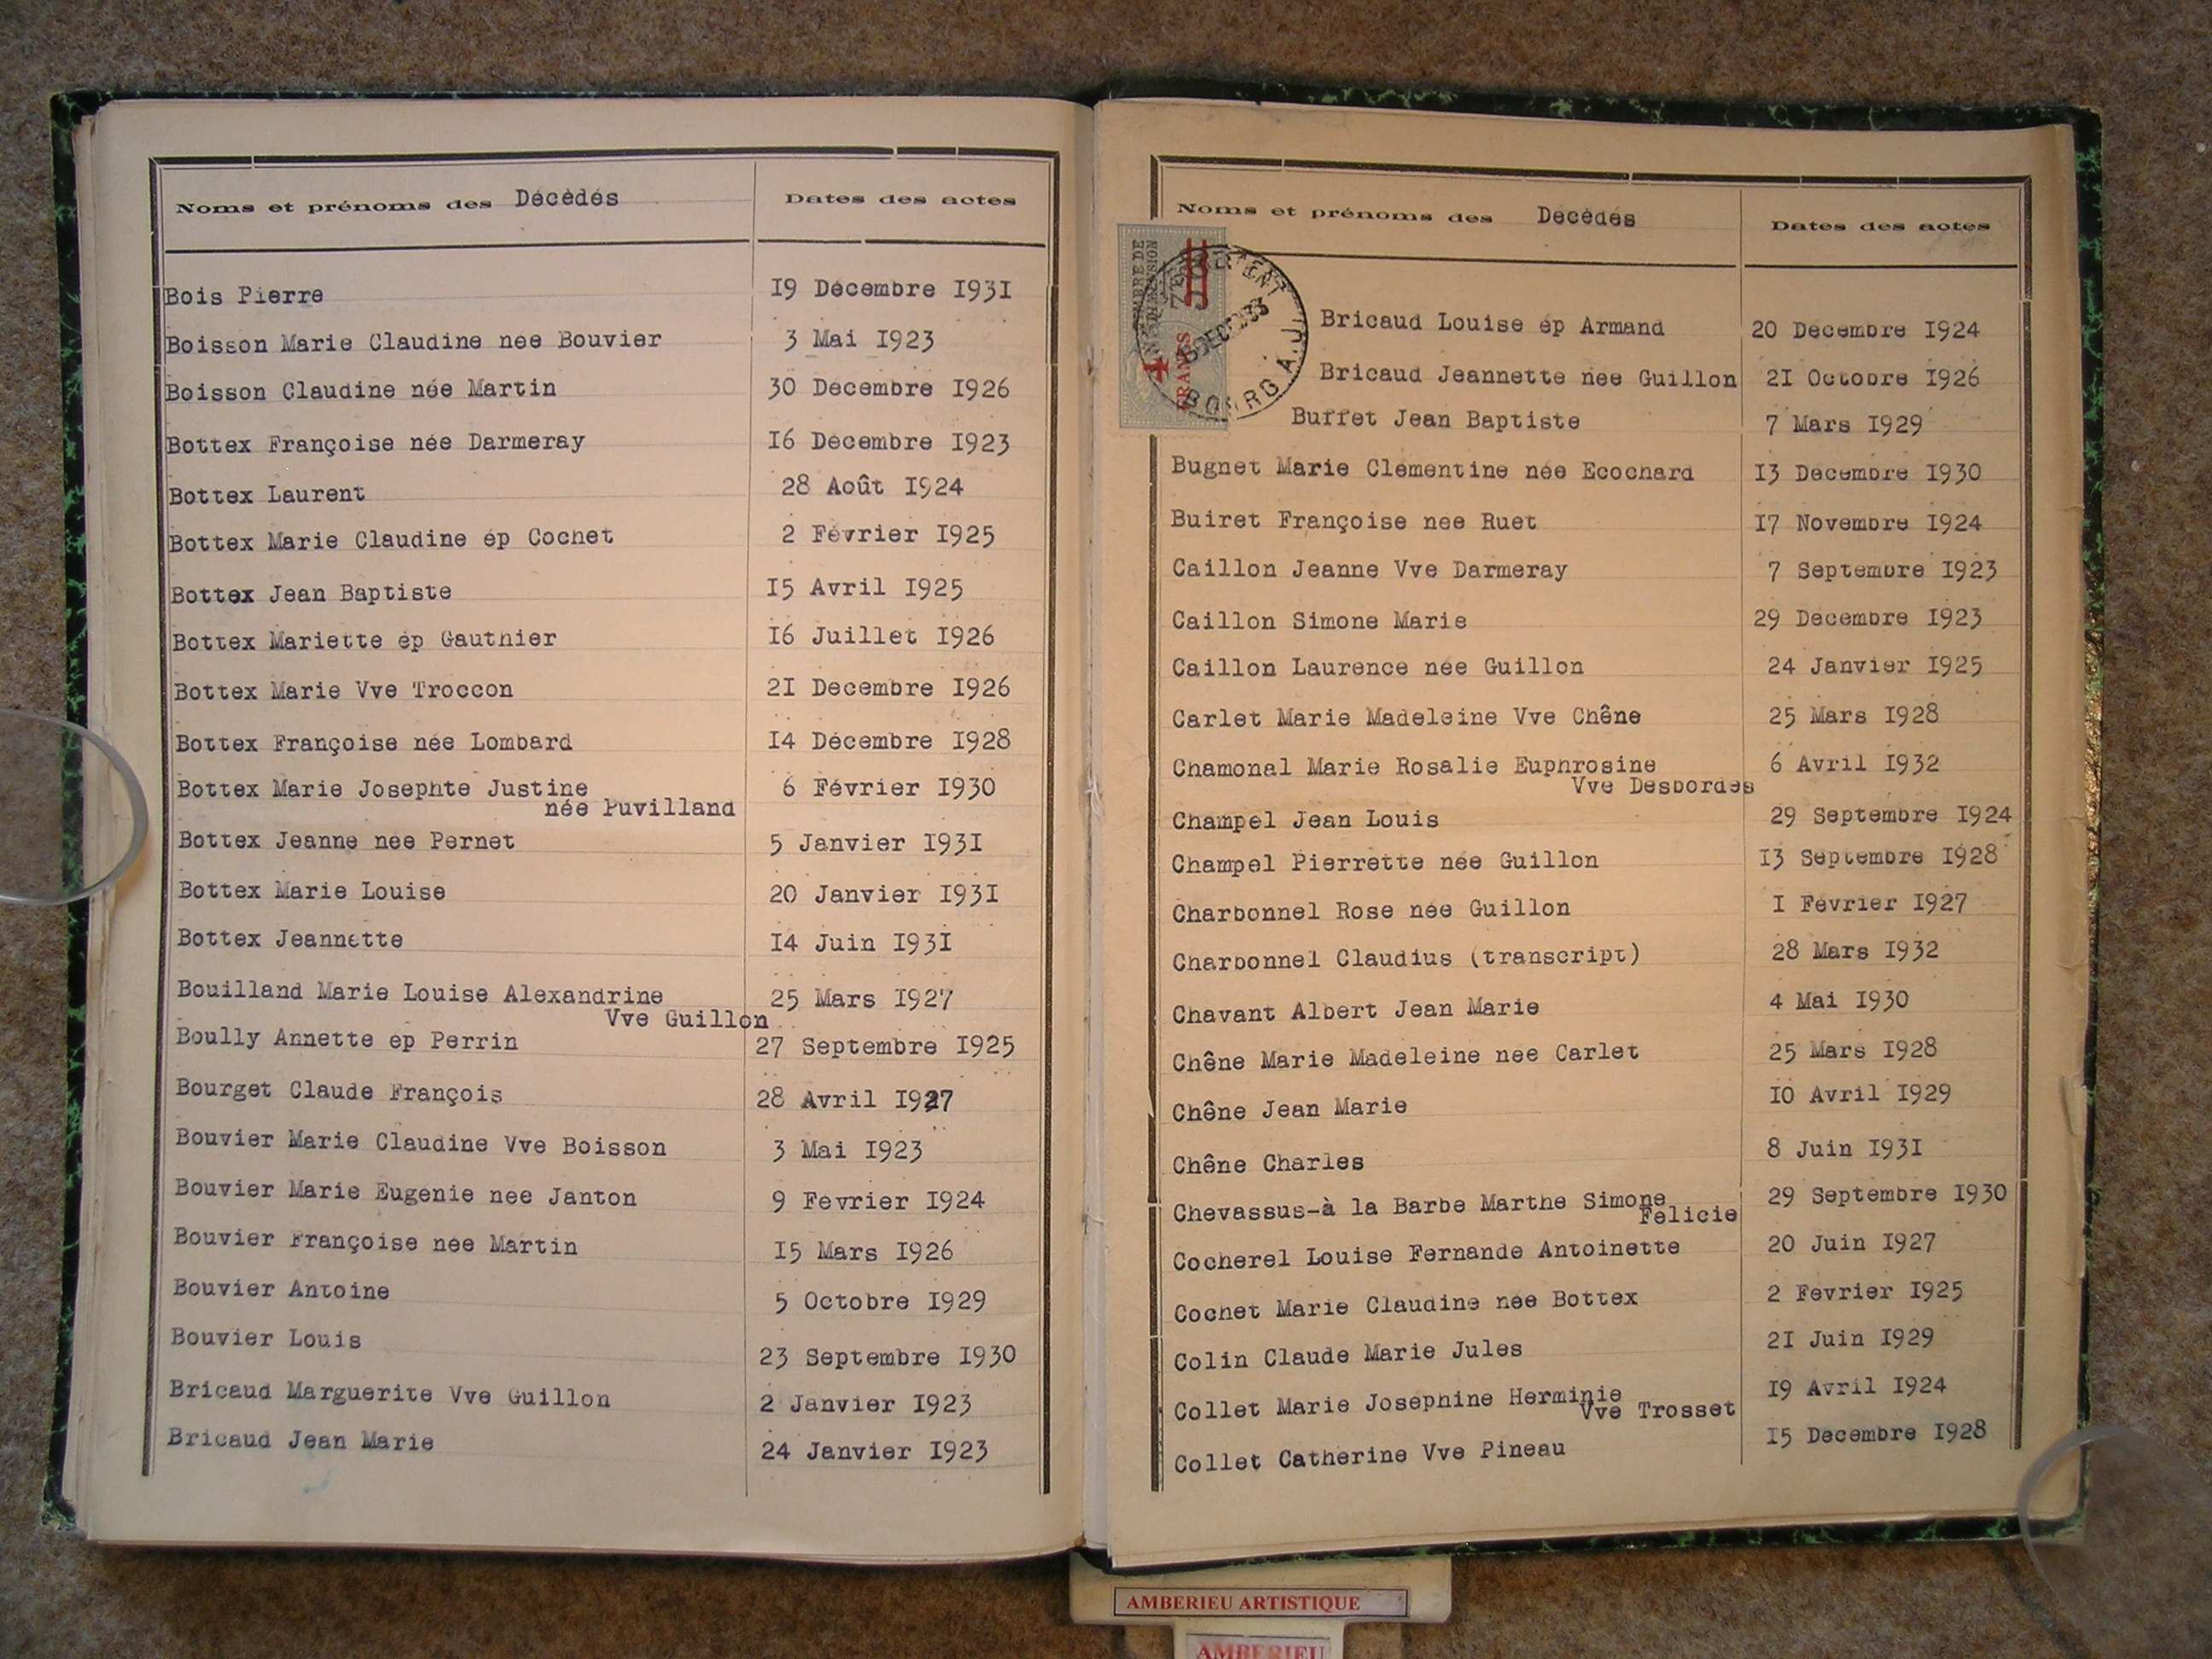 Noms et prénoms des Décèdés Dates des actes
Bois Pierre 19 Décembre 1931
Boisson Marie Claudine née Bouvier 3 Mai 1923
Boisson Claudine née Martin 30 Décembre 1926
Bottex Françoise née Darmeray 16 Décembre 1923
Bottex Laurent 28 Août 1924
Bottex Marie Claudine ép Cochet 2 Février 1925
Bottex Jean Baptiste 15 Avril 1925
Bottex Mariette ép Gauthier 16 Juillet 1926
Bottex Marie Vve Troccon 21 Décembre 1926
Bottex Françoise née Lombard 14 Décembre 1928
Bottex Marie Josephte Justine 6 Février 1930
née Puvilland
Bottex Jeanne née Pernet 5 Janvier 1931
Bottex Marie Louise 20 Janvier 1931
Bottex Jeannette 14 Juin 1931
Bouilland Marie Louise Alexandrine 25 Mars 1927
Vve Guillon
Boully Annette ép Perrin 27 Septembre 1925
Bourget Claude François 28 Avril 1927
Bouvier Marie Claudine Vve Boisson 3 Mai 1923
Bouvier Marie Eugenie née Janton 9 Février 1924
Bouvier Françoise née Martin 15 Mars 1926
Bouvier Antoine 5 Octobre 1929
Bouvier Louis 23 Septembre 1930
Bricaud Marguerite Vve Guillon 2 Janvier 1923
Bricaud Jean Marie 24 Janvier 1923
Noms et prénoms des Décèdés Dates des actes
4 FRANCS
BOURG
Bricaud Louise ép Armand 20 Décembre 1924
Bricaud Jeannette née Guillon 21 Octobre 1926
Burret Jean Baptiste 7 Mars 1929
Bugnet Marie Clémentine née Ecochard 13 Décembre 1930
Buiret Françoise née Ruet 17 Novembre 1924
Caillon Jeanne Vve Darmeray 7 Septembre 1923
Caillon Simone Marie 29 Décembre 1923
Caillon Laurence née Guillon 24 Janvier 1925
Carlet Marie Madeleine Vve Chêne 25 Mars 1928
Chamonal Marie Rosalie Euphrosine 6 Avril 1932
Vve Desbordes
Champel Jean Louis 29 Septembre 1924
Champel Pierrette née Guillon 13 Septembre 1928
Charbonnel Rose née Guillon 1 Février 1927
Charbonnel Claudius (transcript) 28 Mars 1932
Chavant Albert Jean Marie 4 Mai 1930
Chêne Marie Madeleine née Carlet 25 Mars 1928
Chêne Jean Marie 10 Avril 1929
Chêne Charles 8 Juin 1931
Chevassus-à la Barbe Marthe Simone 29 Septembre 1930
Felicie
Cocherel Louise Fernande Antoinette 20 Juin 1927
Cochet Marie Claudine née Bottex 2 Février 1925
Colin Claude Marie Jules 21 Juin 1929
Collet Marie Josephine Herminie 19 Avril 1924
Vve Trosset
Collet Catherine Vve Pineau 15 Décembre 1928
AMBERIEU ARTISTIQUE
AMBERIEU